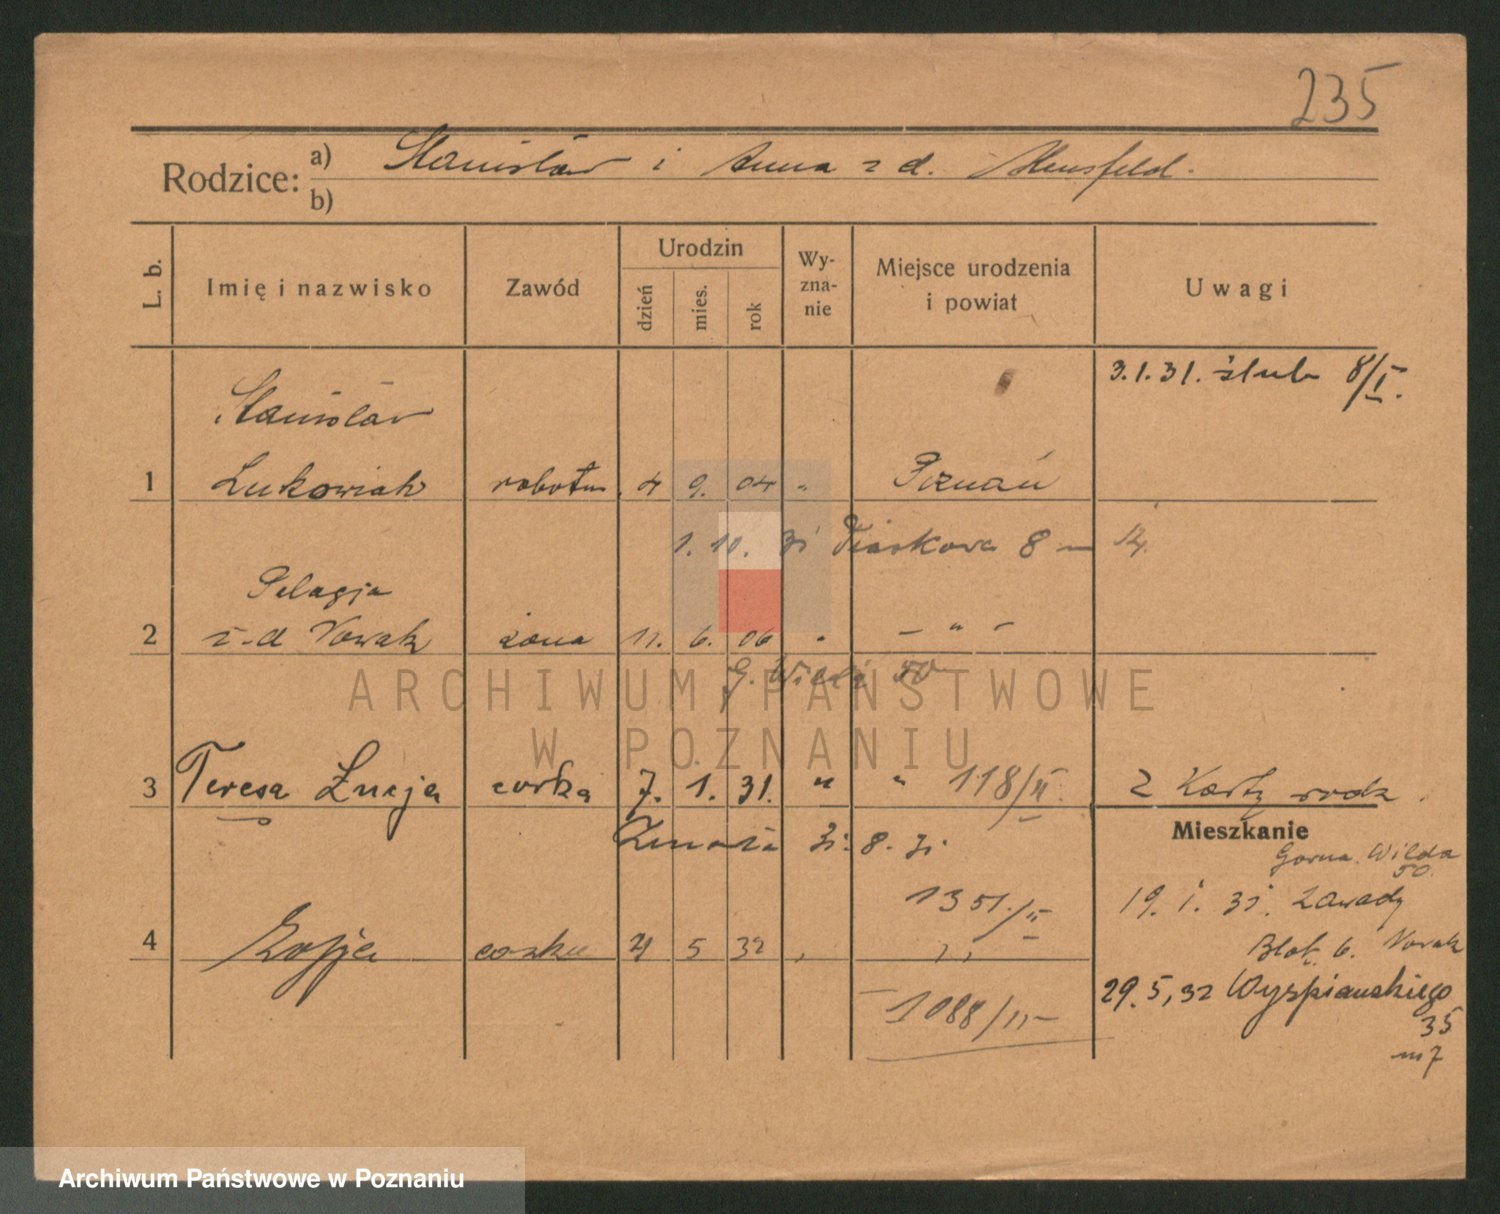 235
Rodzice: a) Stanisław i Anna z d.
b)
L. b. Imię i nazwisko Zawód Urodzin dzień mies. rok Wy-zna-nie Miejsce urodzenia i powiat Uwagi
3.1.31. ślub 8/I.
Stanisław
1 Łukowiak robotn. 4 9. 04 " Poznań
1. 10. 31 Piaskowa 8 — 14.
Pelagja
2 z-d Nowak żona 11. 6. 06 " — " —
G. Wilda 50
3 Teresa Łucja córka 7. 1. 31. " " 118/II. 2 Karty rodz.
Zmarła 31. 8. 31.
Mieszkanie
Gorna Wilda
50.
1351/II
19. 1. 31. Zawady
4 Zofja córka 4 5 32 "
Blok. 6. Nowak
29. 5, 32 Wyspiańskiego
1088/II
35
m 7
ARCHIWUM PAŃSTWOWE
W POZNANIU
Archiwum Państwowe w Poznaniu